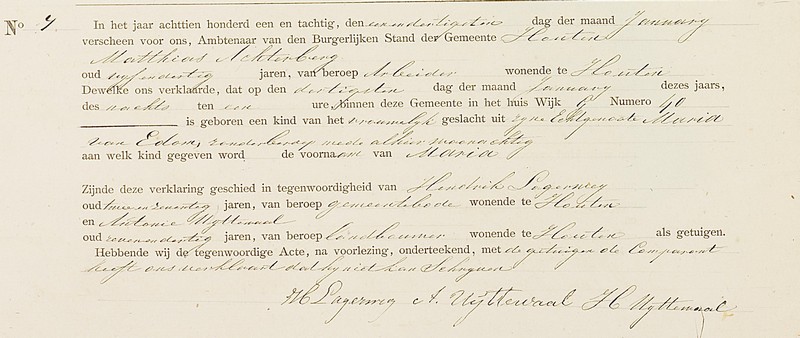 No 7 In het jaar achttien honderd een en tachtig, den eenendertigsten dag der maand January
verscheen voor ons, Ambtenaar van den Burgerlijken Stand der Gemeente Houten
Matthias Achterberg
oud vyfendertig jaren, van beroep Arbeider wonende te Houten
Dewelke ons verklaarde, dat op den dertigsten dag der maand January dezes jaars,
des nachts ten een ure, binnen deze Gemeente in het huis Wijk G Numero 40
is geboren een kind van het vrouwelyk geslacht uit zyne Echtgenoote Maria
van Edom, zonder beroep mede alhier woonachtig
aan welk kind gegeven word de voornaam van Maria
Zijnde deze verklaring geschied in tegenwoordigheid van Hendrik Lagerwey
oud twee en zeventig jaren, van beroep gemeentebode wonende te Houten
en Antonie Uyttewaal
oud zevenendertig jaren, van beroep landbouwer wonende te Houten als getuigen.
Hebbende wij de tegenwoordige Acte, na voorlezing, onderteekend, met de getuigen de Comparant
heeft ons verklaard dat hy niet kan Schryven
H Lagerweg A. Uÿttewaal H Uyttewaal